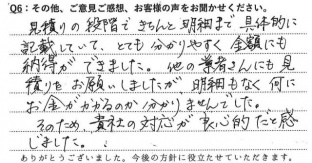 Q6:その他、ご意見ご感想、お客様の声をお聞かせください。
見積りの段階できちんと明細まで具体的に
記載していて、とても分かりやすく金額にも
納得ができました。他の業者さんにも見
積りをお願いしましたが明細もなく何に
お金がかかるのか分かりませんでした。
そのため、貴社の対応が良心的だと感
じました。
ありがとうございました。今後の方針に役立たせていただきます。